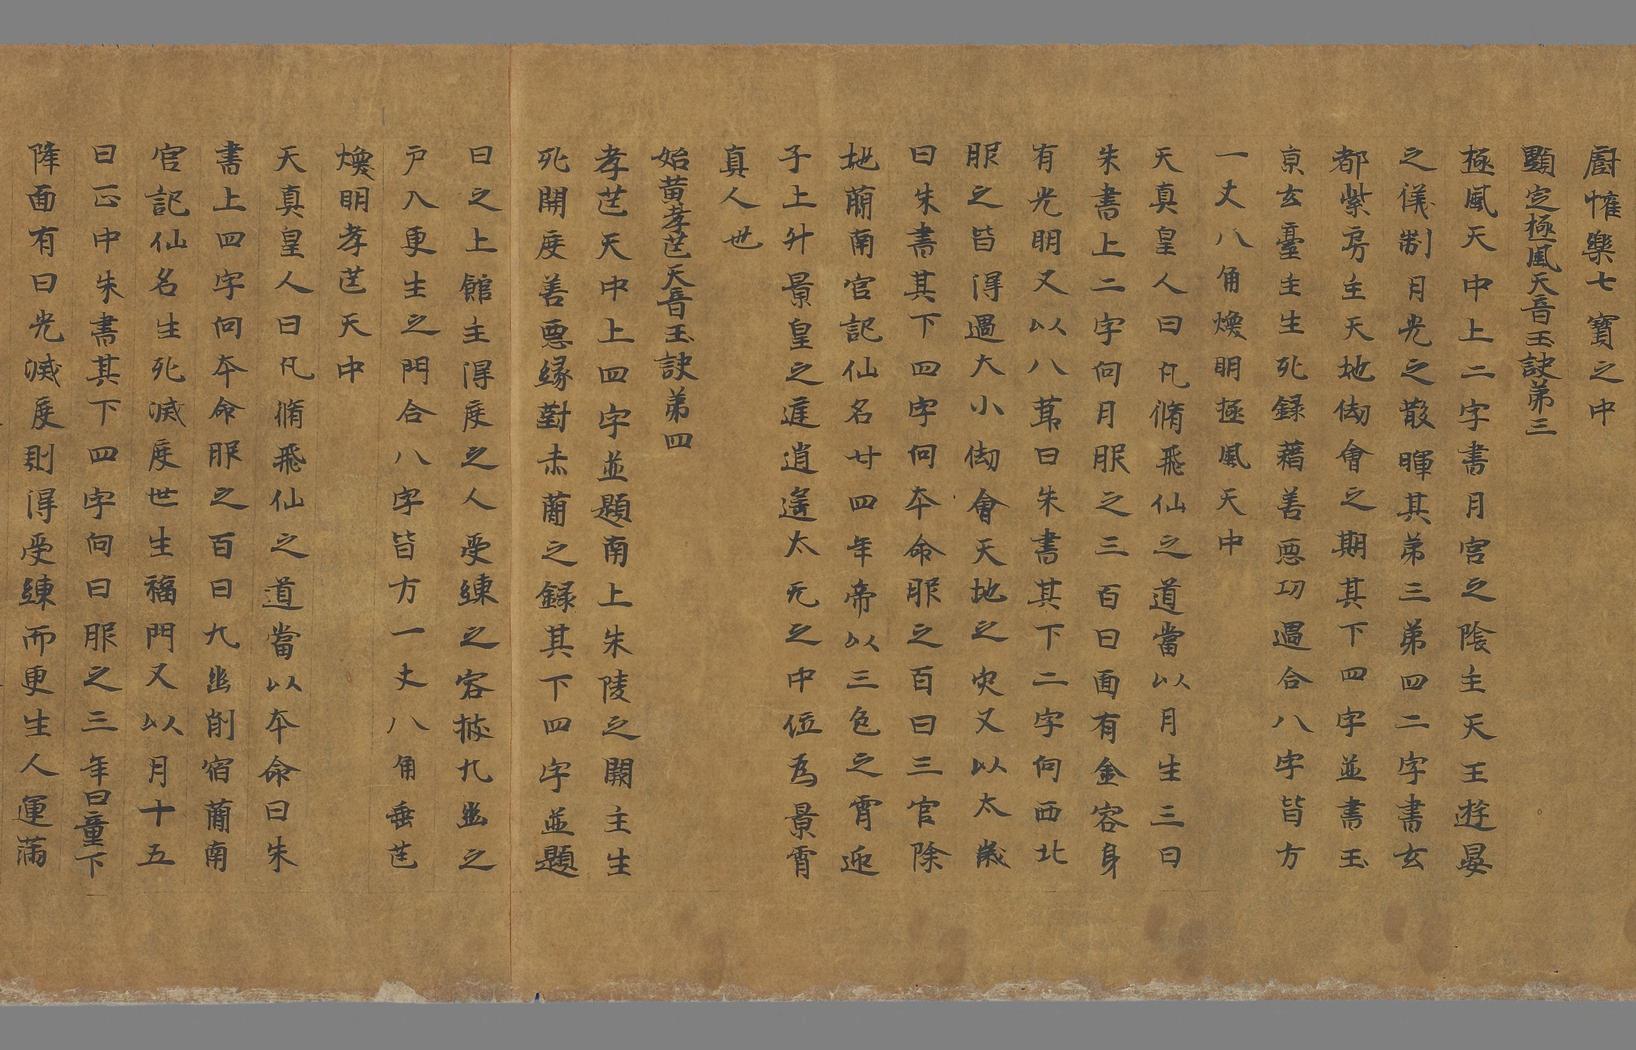 廚帷樂七寶之中
顯定極風天音玉訣弟三
極風天中上二字書月宮之陰主天王遊晏
之儀制月光之散暉其弟三弟四二字書玄
都紫房主天地劫會之期其下四字並書玉
京玄臺主生死録藉善惡功過合八字皆方
一丈八角煥明極風天中
天真皇人曰凡脩飛仙之道當以月生三日
朱書上二字向月服之三百日面有金容身
有光明又以八莭日朱書其下二字向西北
服之皆得過大小劫會天地之灾又以太歲
日朱書其下四字向夲命服之百日三官除
地蕳南宮記仙名廿四年帝以三色之霄迎
子上升景皇之庭逍遙太无之中位為景霄
真人世
始黄孝芒天音玉訣弟四
孝芒天中上四字並題南上朱陵之闕主生
死開度善惡縁對未蕳之録其下四字並題
日之上館主得度之人受練之容披九幽之
戸入更生之門合八字皆方一丈八角垂芒
煥明孝芒天中
天真皇人曰凡脩飛仙之道當以夲命日朱
書上四字向夲命服之百日九幽削宿蕳南
宮記仙名生死滅度世生福門又以月十五
日正中朱書其下四字向日服之三年日童下
降面有日光滅度則得受練而更生人運滿